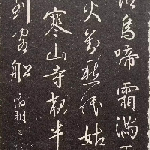 烏啼霜滿
火對愁眠姑
寒山寺夜半
到客船